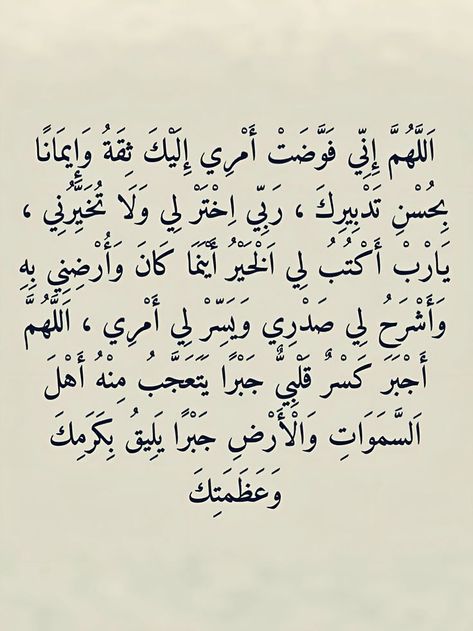 اَللَّهُمَّ إِنِّي فَوَّضَتْ أَمْرِي إِلَيْكَ ثِقَةُ وَإِيمَانًا
بِحُسْنِ تَدْبِيرِكَ ، رَبِّي اِخْتَرْ لِي وَلَا تُخَيِّرُنِي ،
يَارْبْ أَكْتُبُ لِي اَلْخَيْرُ أَيْنَمَا كَانَ وَأُرْضِنِي بِهِ
وَأَشْرَحُ لِي صَدْرِي وَيَسِّرْ لِي أَمْرِي ، اَللَّهُمَّ
أَجْبَرَ كَسْرٌ قَلْبِيٌّ جَبْرًا يَتَعَجَّبُ مِنْهُ أَهْلَ
اَلسَّمَوَاتِ وَالْأَرْضِ جَبْرًا يَلِيقُ بِكَرَمِكَ
وَعَظَمَتِكَ